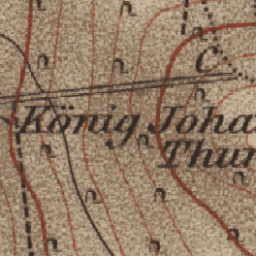 C
König Joha
Thur